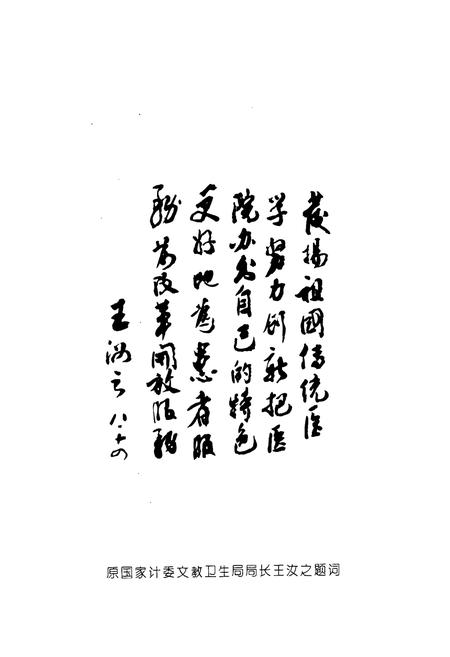 发扬祖國传统医
学努力创新把医
院办出自己的特色
更好地為患者服
務為改革開放服務
王汝之 八.十四
原国家计委文教卫生局局长王汝之题词